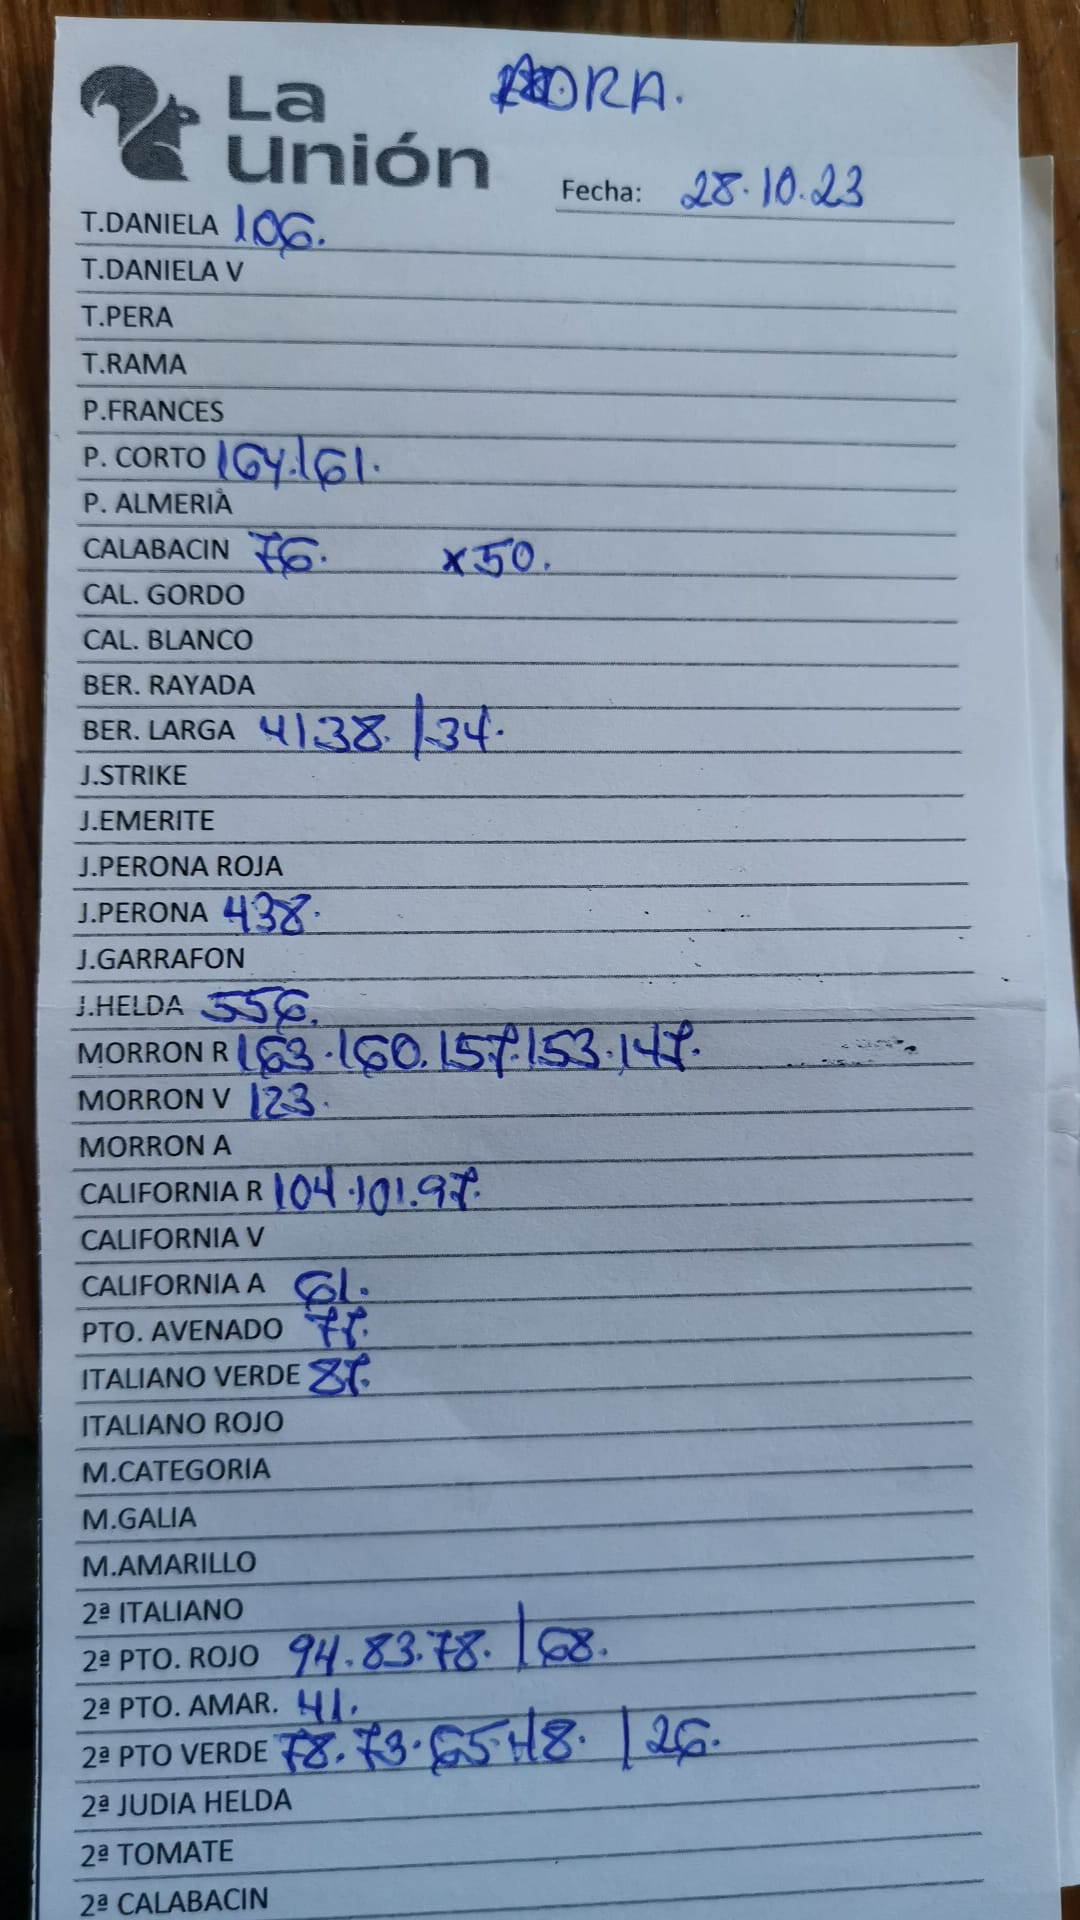 La
Unión
ADRA.
Fecha: 28.10.23
T.DANIELA 106.
T.DANIELA V
T.PERA
T.RAMA
P.FRANCES
P. CORTO 164.161.
P. ALMERIA
CALABACIN 76. x50.
CAL. GORDO
CAL. BLANCO
BER. RAYADA
BER. LARGA 41.38. | 34.
J.STRIKE
J.EMERITE
J.PERONA ROJA
J.PERONA 438.
J.GARRAFON
J.HELDA 556.
MORRON R 163.160.157.153.147.
MORRON V 123.
MORRON A
CALIFORNIA R 104.101.97.
CALIFORNIA V
CALIFORNIA A 61.
PTO. AVENADO 77.
ITALIANO VERDE 87.
ITALIANO ROJO
M.CATEGORIA
M.GALIA
M.AMARILLO
2ª ITALIANO
2ª PTO. ROJO 94.83.78. | 68.
2ª PTO. AMAR. 41.
2ª PTO VERDE 78.73.65.48. | 26.
2ª JUDIA HELDA
2ª TOMATE
2ª CALABACIN